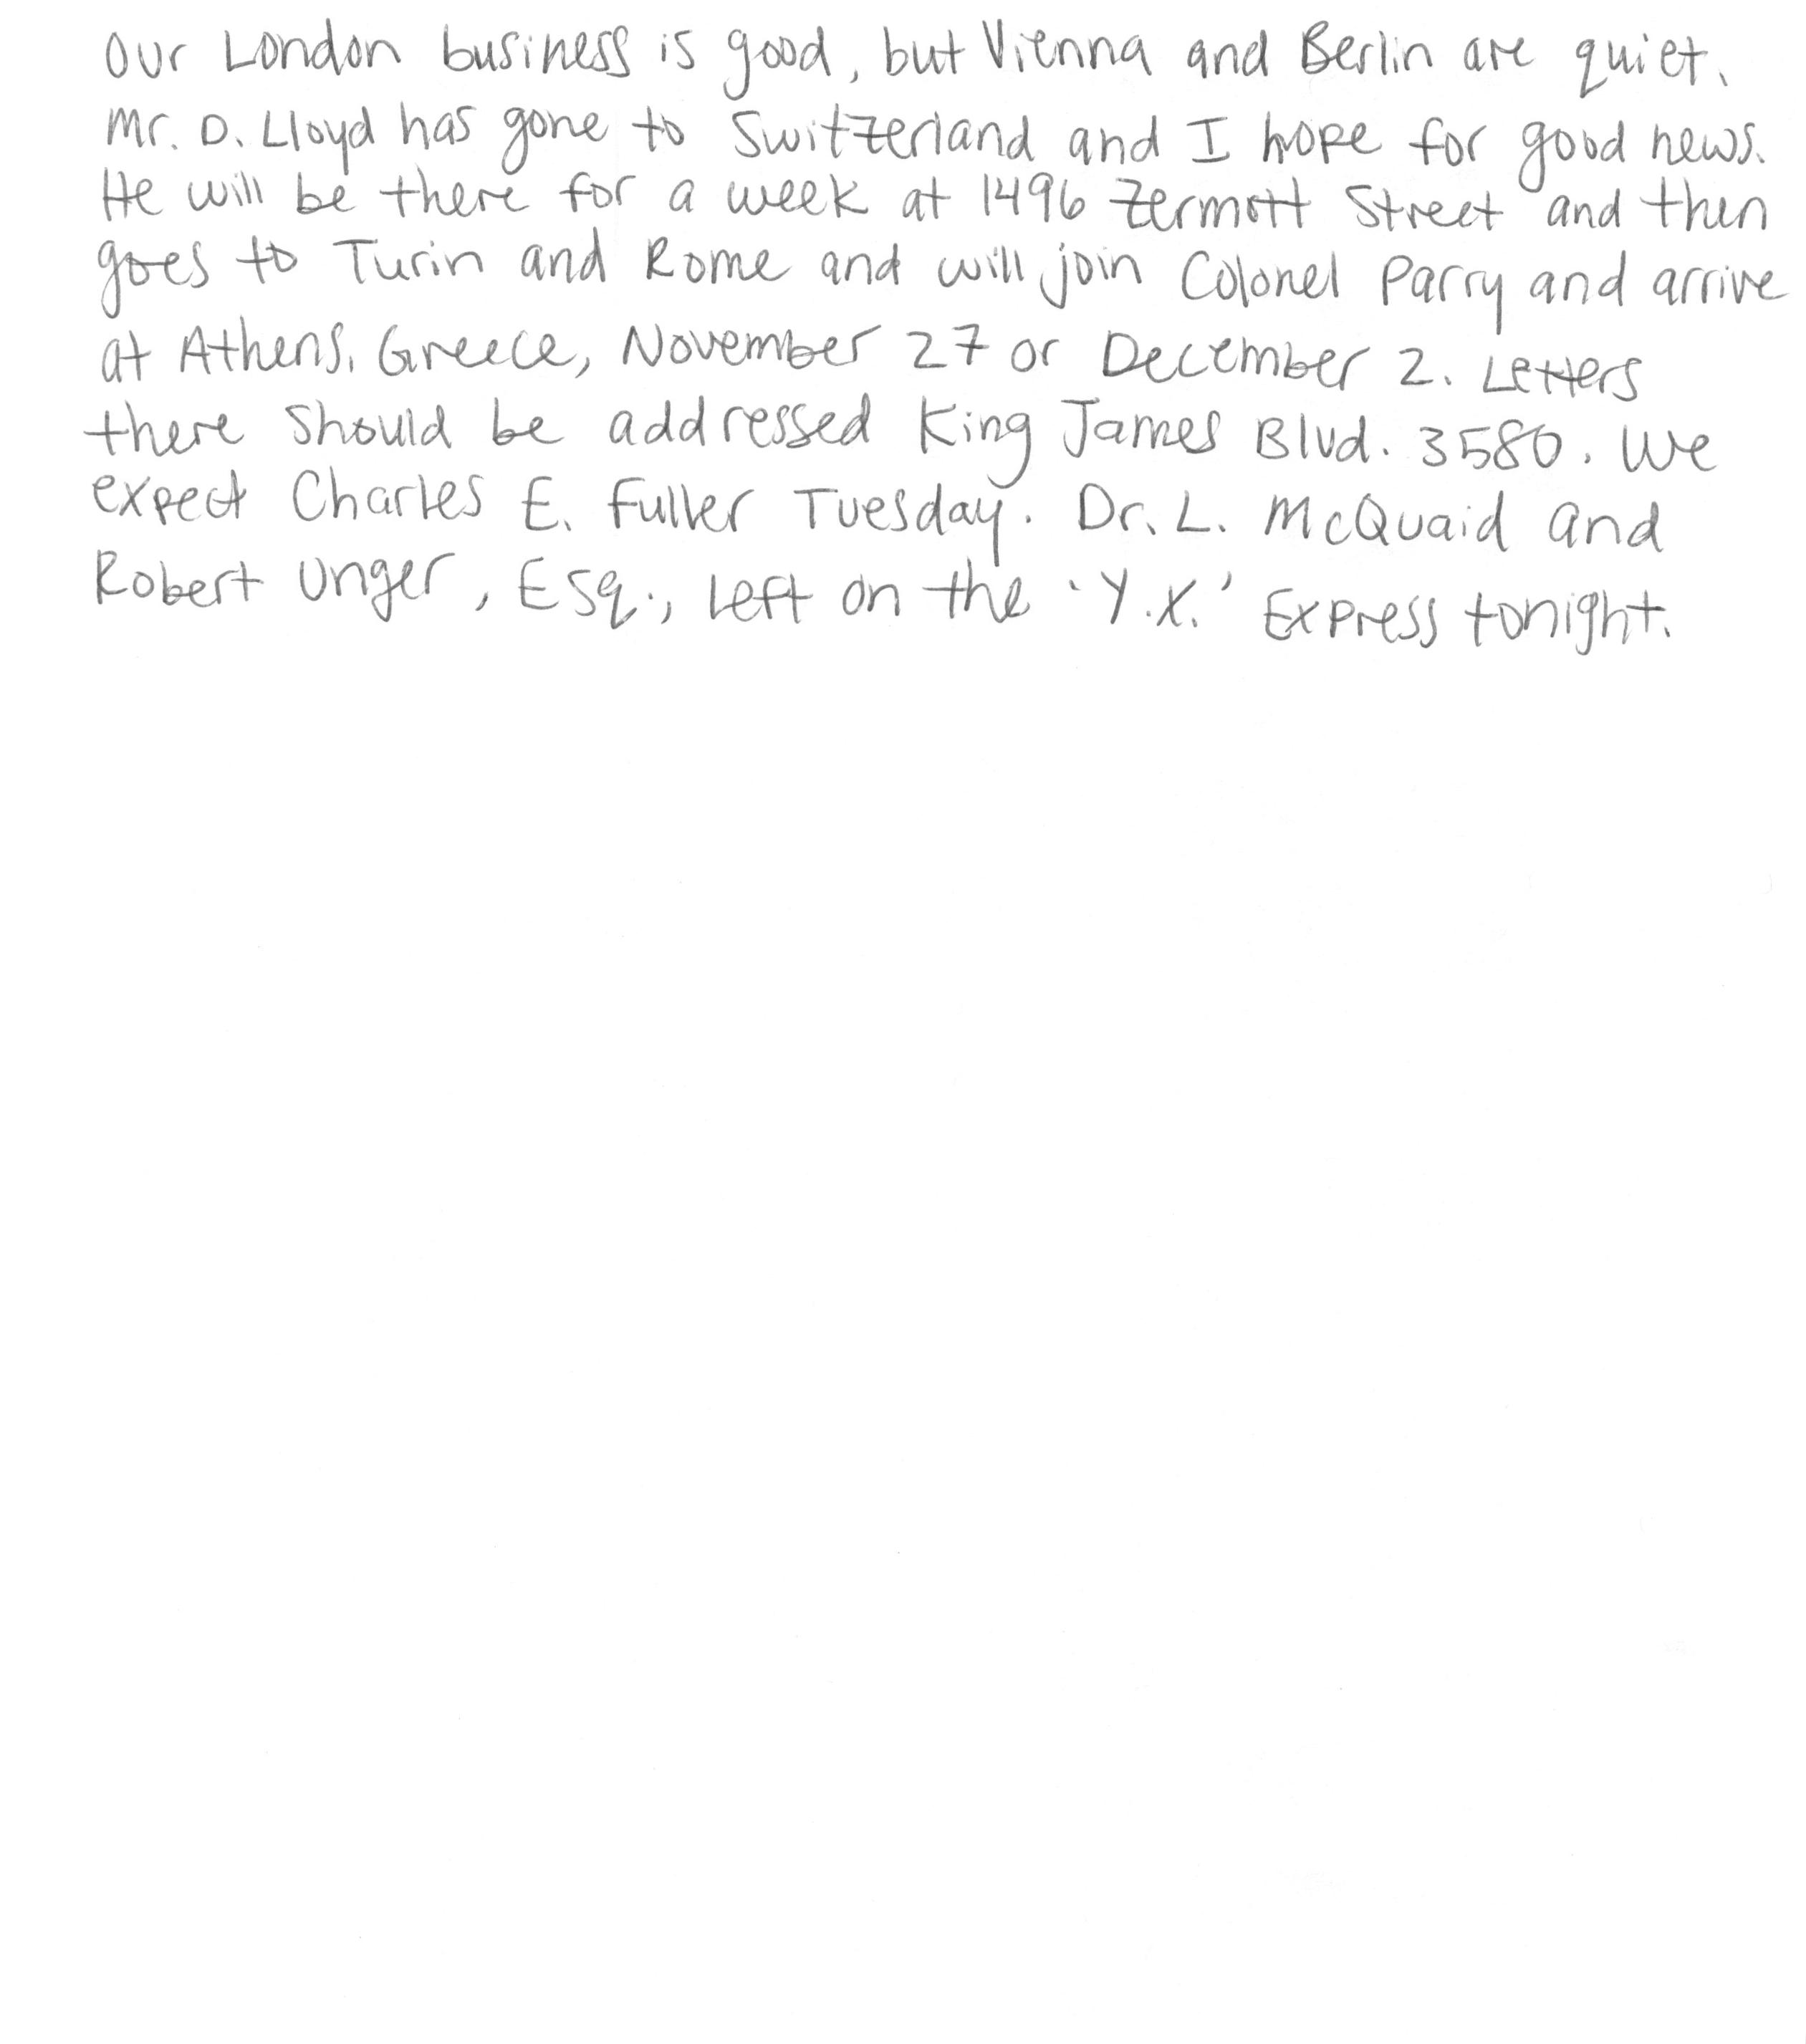 Our London business is good, but Vienna and Berlin are quiet.
Mr. D. Lloyd has gone to Switzerland and I hope for good news.
He will be there for a week at 1496 Zermott Street and then
goes to Turin and Rome and will join Colonel Parry and arrive
at Athens, Greece, November 27 or December 2. Letters
there should be addressed King James Blvd. 3580. We
expect Charles E. Fuller Tuesday. Dr. L. McQuaid and
Robert Unger, Esq., left on the 'Y.X.' Express tonight.